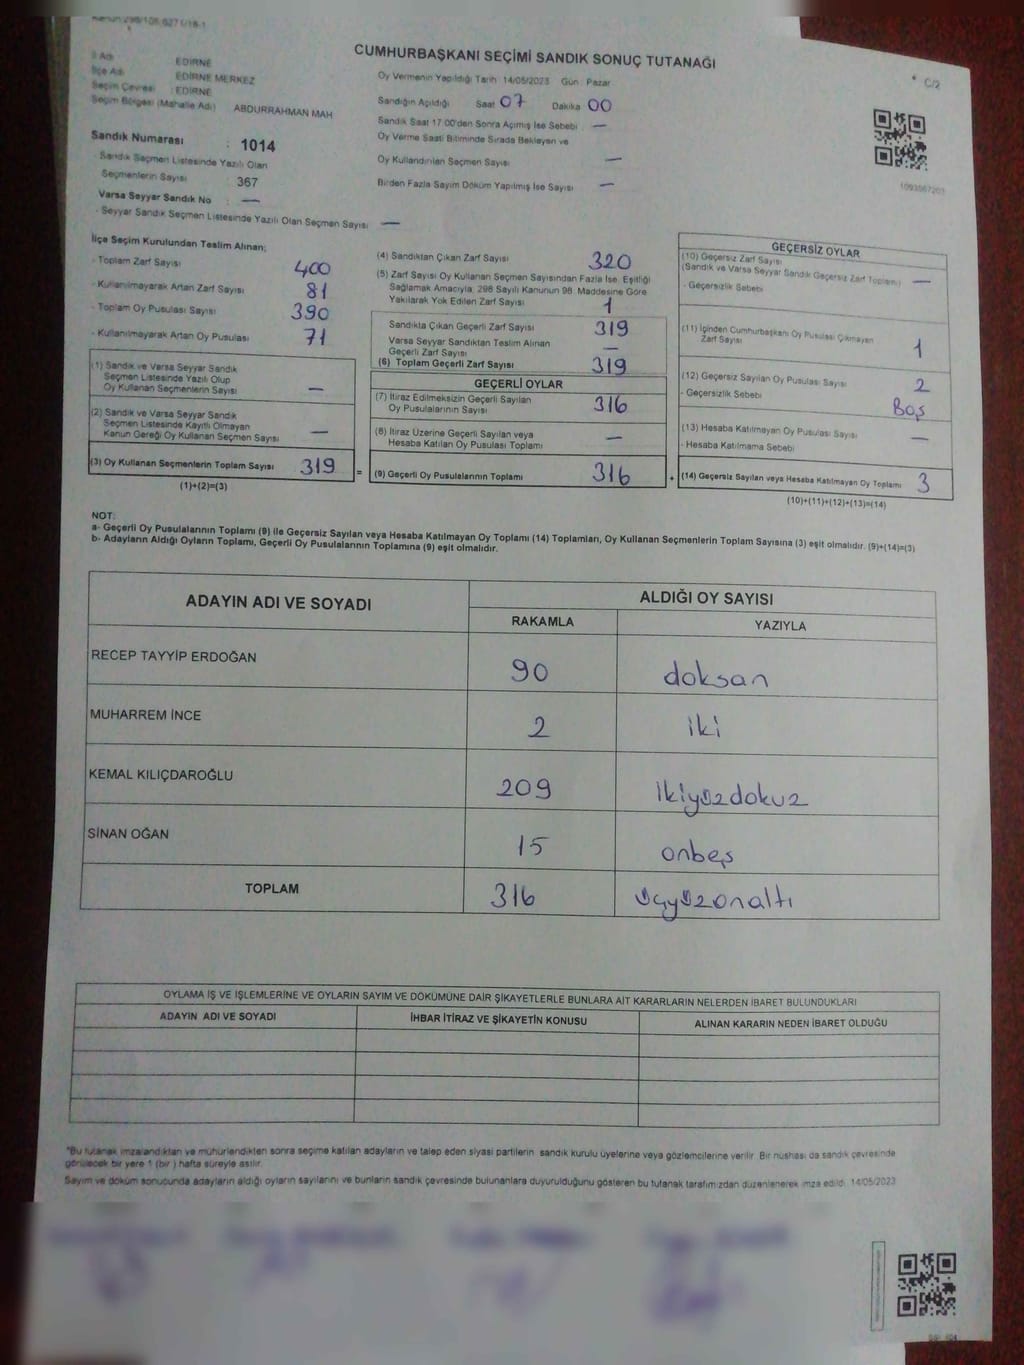 CUMHURBAŞKANI SEÇİMİ SANDIK SONUÇ TUTANAĞI
C/2
İl Adı : EDİRNE
İlçe Adı : EDİRNE MERKEZ
Seçim Çevresi : EDİRNE
Seçim Bölgesi (Mahalle Adı) : ABDURRAHMAN MAH
Sandık Numarası : 1014
Sandık Seçmen Listesinde Yazılı Olan
Seçmenlerin Sayısı : 367
Varsa Seyyar Sandık No : —
- Seyyar Sandık Seçmen Listesinde Yazılı Olan Seçmen Sayısı —
Oy Vermenin Yapıldığı Tarih 14/05/2023 Gün Pazar
Sandığın Açıldığı Saat 07 Dakika 00
Sandık Saat 17:00'den Sonra Açımış İse Sebebi —
Oy Verme Saati Bitiminde Sırada Bekleyen ve
Oy Kullandırılan Seçmen Sayısı —
Birden Fazla Sayım Döküm Yapılmış İse Sayısı —
İlçe Seçim Kurulundan Teslim Alınan;
- Toplam Zarf Sayısı 400
- Kullanılmayarak Artan Zarf Sayısı 81
- Toplam Oy Pusulası Sayısı 390
- Kullanılmayarak Artan Oy Pusulası 71
(1) Sandık ve Varsa Seyyar Sandık
Seçmen Listesinde Yazılı Olup
Oy Kullanan Seçmenlerin Sayısı —
(2) Sandık ve Varsa Seyyar Sandık
Seçmen Listesinde Kayıtlı Olmayan
Kanun Gereği Oy Kullanan Seçmen Sayısı —
(3) Oy Kullanan Seçmenlerin Toplam Sayısı 319 =
(1)+(2)=(3)
(4) Sandıktan Çıkan Zarf Sayısı 320
(5) Zarf Sayısı Oy Kullanan Seçmen Sayısından Fazla İse, Eşitliği
Sağlamak Amacıyla, 298 Sayılı Kanunun 98. Maddesine Göre
Yakılarak Yok Edilen Zarf Sayısı 1
Sandıkta Çıkan Geçerli Zarf Sayısı 319
Varsa Seyyar Sandıktan Teslim Alınan
Geçerli Zarf Sayısı —
(6) Toplam Geçerli Zarf Sayısı 319
GEÇERLİ OYLAR
(7) İtiraz Edilmeksizin Geçerli Sayılan
Oy Pusulalarının Sayısı 316
(8) İtiraz Üzerine Geçerli Sayılan veya
Hesaba Katılan Oy Pusulası Toplamı —
(9) Geçerli Oy Pusulalarının Toplamı 316 +
GEÇERSİZ OYLAR
(10) Geçersiz Zarf Sayısı
(Sandık ve Varsa Seyyar Sandık Geçersiz Zarf Toplamı) —
- Geçersizlik Sebebi
(11) İçinden Cumhurbaşkanı Oy Pusulası Çıkmayan
Zarf Sayısı 1
(12) Geçersiz Sayılan Oy Pusulası Sayısı 2
- Geçersizlik Sebebi Boş
(13) Hesaba Katılmayan Oy Pusulası Sayısı —
- Hesaba Katılmama Sebebi
(14) Geçersiz Sayılan veya Hesaba Katılmayan Oy Toplamı 3
(10)+(11)+(12)+(13)=(14)
NOT:
a- Geçerli Oy Pusulalarının Toplamı (9) ile Geçersiz Sayılan veya Hesaba Katılmayan Oy Toplamı (14) Toplamları, Oy Kullanan Seçmenlerin Toplam Sayısına (3) eşit olmalıdır. (9)+(14)=(3)
b- Adayların Aldığı Oyların Toplamı, Geçerli Oy Pusulalarının Toplamına (9) eşit olmalıdır.
ADAYIN ADI VE SOYADI ALDIĞI OY SAYISI
RAKAMLA YAZIYLA
RECEP TAYYİP ERDOĞAN 90 doksan
MUHARREM İNCE 2 iki
KEMAL KILIÇDAROĞLU 209 ikiyüzdokuz
SİNAN OĞAN 15 onbeş
TOPLAM 316 üçyüzonaltı
OYLAMA İŞ VE İŞLEMLERİNE VE OYLARIN SAYIM VE DÖKÜMÜNE DAİR ŞİKAYETLERLE BUNLARA AİT KARARLARIN NELERDEN İBARET BULUNDUKLARI
ADAYIN ADI VE SOYADI İHBAR İTİRAZ VE ŞİKAYETİN KONUSU ALINAN KARARIN NEDEN İBARET OLDUĞU
*Bu tutanak imzalandıktan ve mühürlendikten sonra seçime katılan adayların ve talep eden siyasi partilerin sandık kurulu üyelerine veya gözlemcilerine verilir. Bir nushası da sandık çevresinde
görülecek bir yere 1 (bir) hafta süreyle asılır.
Sayım ve döküm sonucunda adayların aldığı oyların sayılarını ve bunların sandık çevresinde bulunanlara duyurulduğunu gösteren bu tutanak tarafımızdan düzenlenerek imza edildi. 14/05/2023